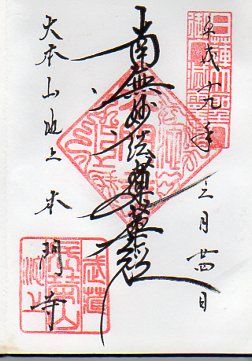 平成十九年 三月廿四日
南無妙法蓮華経
大本山池上 本門寺